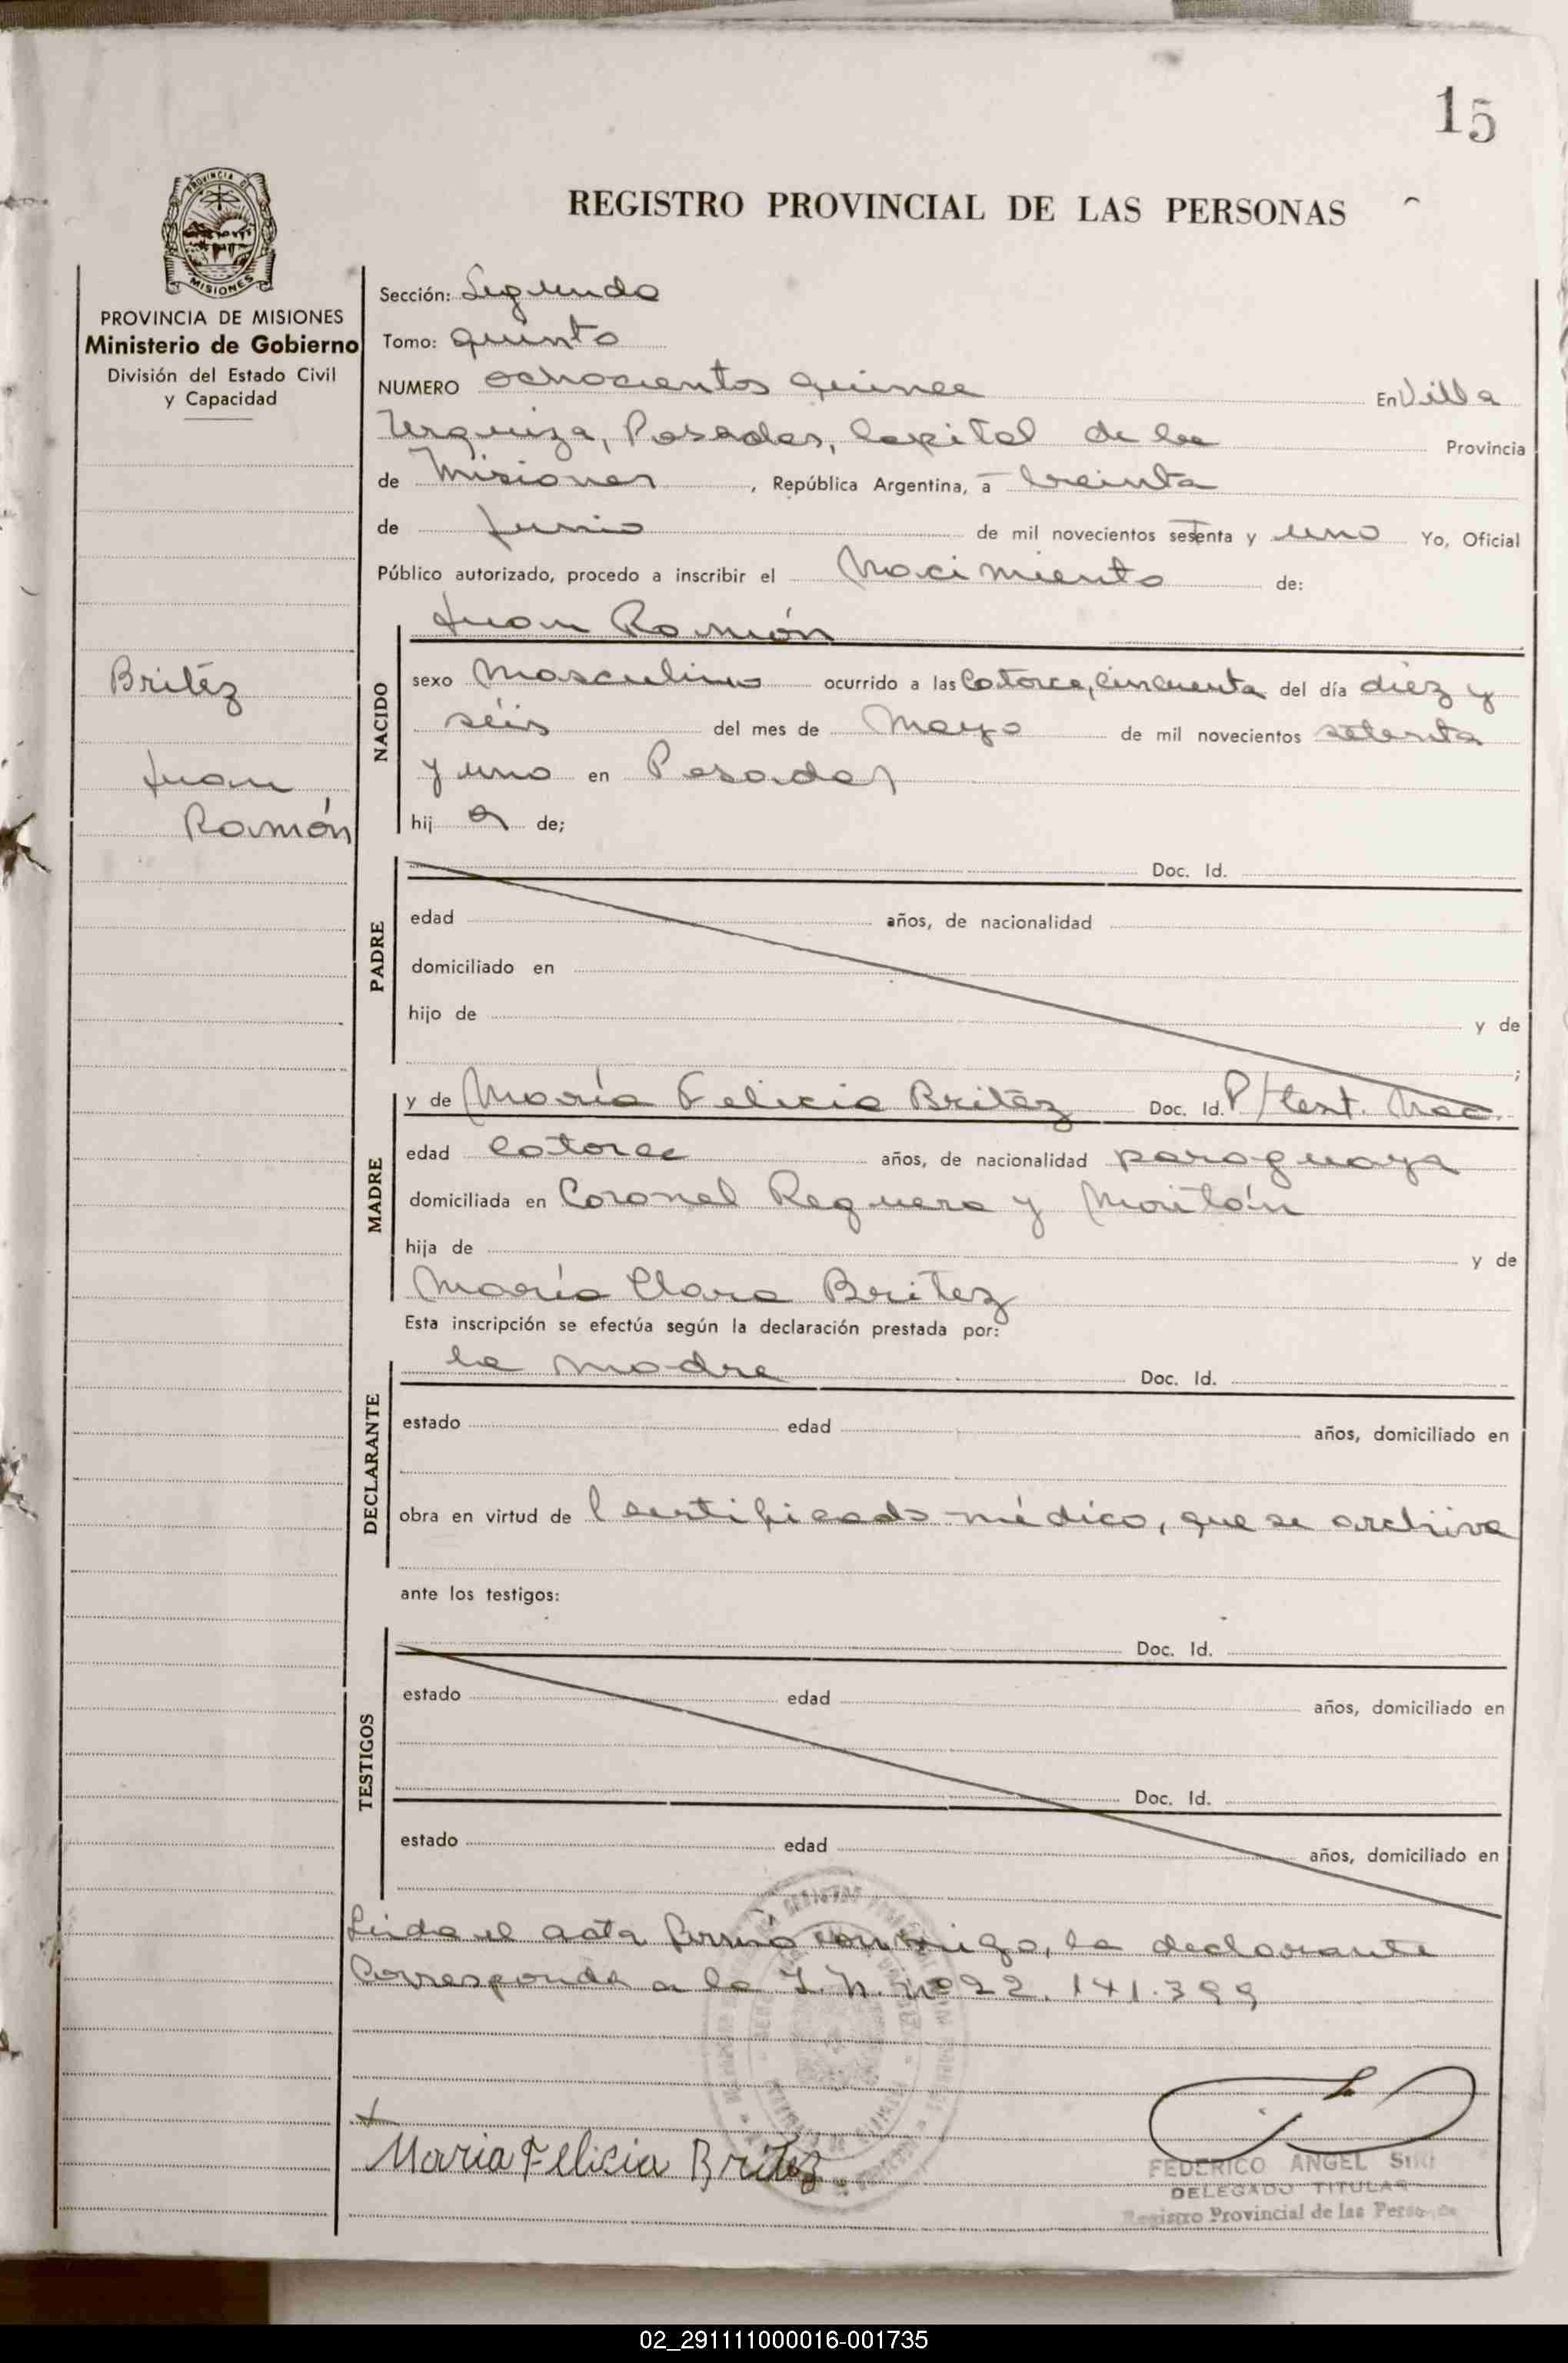 15
REGISTRO PROVINCIAL DE LAS PERSONAS
PROVINCIA DE
MISIONES
PROVINCIA DE MISIONES
Ministerio de Gobierno
División del Estado Civil
y Capacidad
Britéz
Juan
Ramón
Sección: Segunda
Tomo: quinto
NUMERO ochocientos quince En Villa
Urquiza, Posadas, Capital de la Provincia
de Misiones, República Argentina, a treinta
de Junio de mil novecientos setenta y uno Yo, Oficial
Público autorizado, procedo a inscribir el Nacimiento de:
Juan Ramón
NACIDO
sexo Masculino ocurrido a las Catorce, cincuenta del día diez y
séis del mes de Mayo de mil novecientos setenta
y uno en Posadas
hij o de;
PADRE
Doc. Id.
edad años, de nacionalidad
domiciliado en
hijo de y de
;
MADRE
y de María Felicia Britéz Doc. Id. P/test. Nac.
edad catorce años, de nacionalidad paraguaya
domiciliada en Coronel Reguera y
hija de y de
María Clara Britez
Esta inscripción se efectúa según la declaración prestada por:
DECLARANTE
la madre Doc. Id.
estado edad años, domiciliado en
obra en virtud de Certificado médico, que se archiva
ante los testigos:
TESTIGOS
Doc. Id.
estado edad años, domiciliado en
Doc. Id.
estado edad años, domiciliado en
Leída el acta firmó conmigo, la declarante
Corresponde a la I.N. nº 22.141.399
Maria Felicia Britez.
FEDERICO ANGEL
DELEGADO TITULAR
Registro Provincial de las Personas
02_291111000016-001735